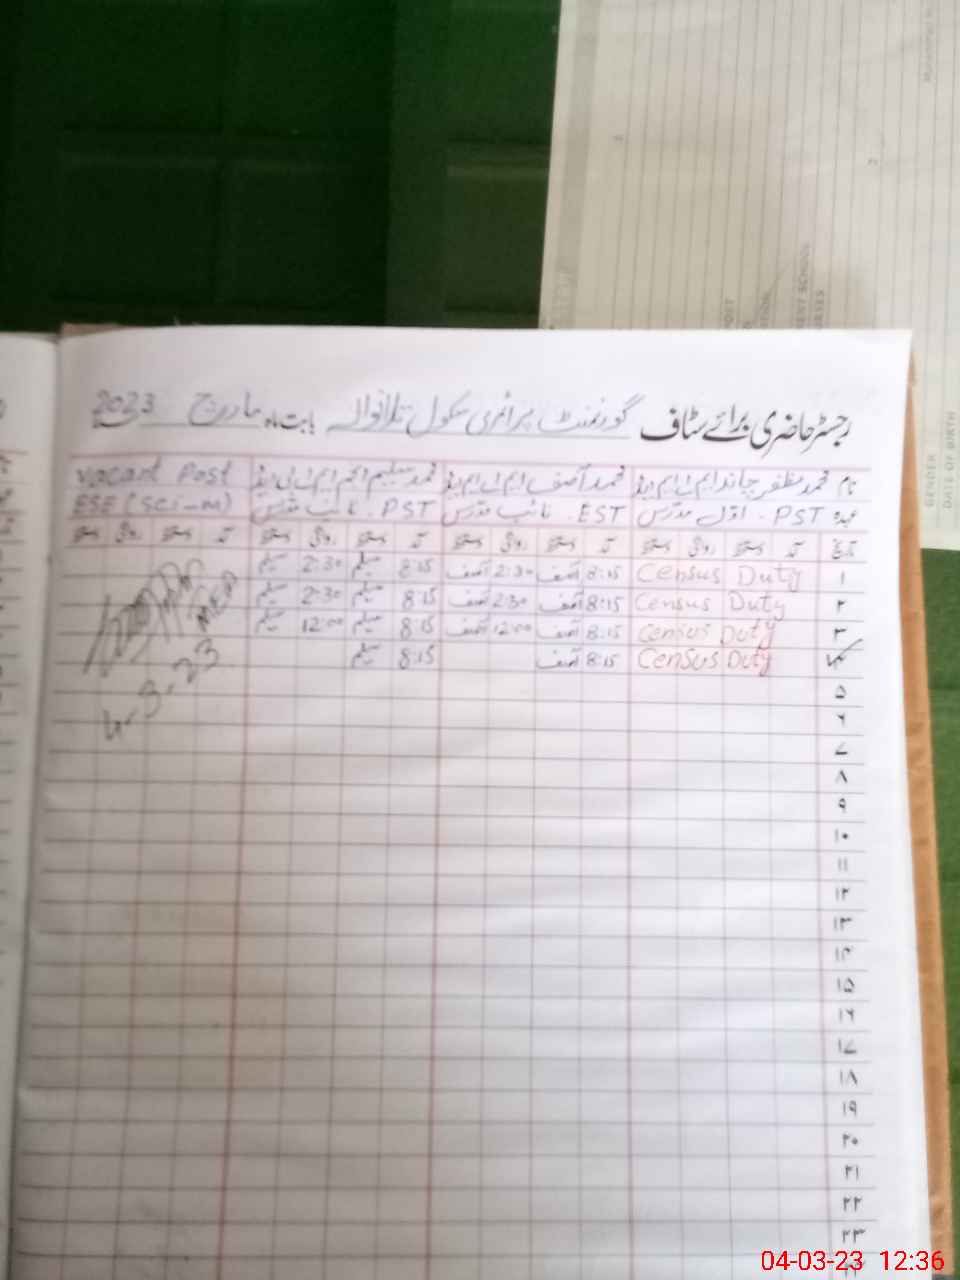 رجسٹر حاضری برائے سٹاف گورنمنٹ پرائمری سکول بابت ماہ مارچ 2023
نام محمد مظفر چاند ایم اے ایم ایڈ محمد آصف ایم اے ایم ایڈ محمد سلیم انجم ایم اے بی ایڈ Vacant Post
عہدہ PST . اول مدرس EST . نائب مدرس PST . نائب مدرس ESE (Sci-M)
تاریخ آمد دستخط روانگی دستخط آمد دستخط روانگی دستخط آمد دستخط روانگی دستخط آمد دستخط روانگی دستخط
۱ Census Duty 8:15 آصف 2:30 آصف 8:15 سلیم 2:30 سلیم
۲ Census Duty 8:15 آصف 2:30 آصف 8:15 سلیم 2:30 سلیم
۳ Census Duty 8:15 آصف 12:00 آصف 8:15 سلیم 12:00 سلیم
۴ Census Duty 8:15 آصف 8:15 سلیم
MEA
4-3-23
۵
۶
۷
۸
۹
۱۰
۱۱
۱۲
۱۳
۱۴
۱۵
۱۶
۱۷
۱۸
۱۹
۲۰
۲۱
۲۲
۲۳
GENDER
DATE OF BIRTH
04-03-23 12:36